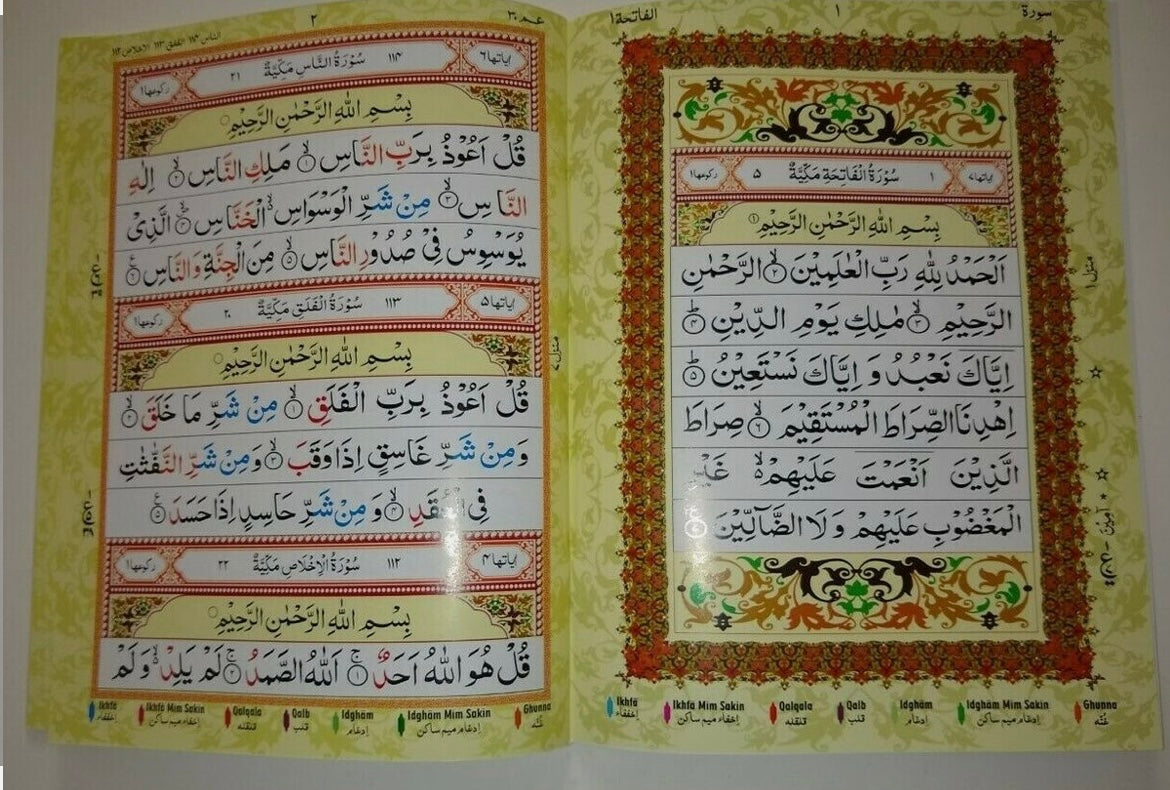 سورة
١
الفاتحة ١
اٰياتها ٧
١ سُوْرَةُ الْفَاتِحَةِ مَكِّيَّةٌ ٥
ركوعها ١
بِسْمِ اللّٰهِ الرَّحْمٰنِ الرَّحِيْمِ ١
اَلْحَمْدُ لِلّٰهِ رَبِّ الْعٰلَمِيْنَ ۙ٢ الرَّحْمٰنِ
الرَّحِيْمِ ۙ٣ مٰلِكِ يَوْمِ الدِّيْنِ ؕ٤
اِيَّاكَ نَعْبُدُ وَ اِيَّاكَ نَسْتَعِيْنُ ؕ٥
اِهْدِنَا الصِّرَاطَ الْمُسْتَقِيْمَ ۙ٦ صِرَاطَ
الَّذِيْنَ اَنْعَمْتَ عَلَيْهِمْ ۙ غَيْرِ
الْمَغْضُوْبِ عَلَيْهِمْ وَ لَا الضَّآلِّيْنَ
منزل ١
اٰمِيْن
Ikhfa Ikhfa Mim Sakin Qalqala Qalb Idghām Idghām Mim Sakin Ghunna
إخفاء إخفاء ميم ساكن قلقله قلب إدغام إدغام ميم ساكن غُنّه
عم ٣٠
٢
الناس ١١٤ الفلق ١١٣ الاخلاص ١١٢
اٰياتها ٦
١١٤ سُوْرَةُ النَّاسِ مَكِّيَّةٌ ٢١
ركوعها ١
بِسْمِ اللّٰهِ الرَّحْمٰنِ الرَّحِيْمِ
قُلْ اَعُوْذُ بِرَبِّ النَّاسِ ۙ١ مَلِكِ النَّاسِ ۙ٢ اِلٰهِ
النَّاسِ ۙ٣ مِنْ شَرِّ الْوَسْوَاسِ ۙ الْخَنَّاسِ ٤ الَّذِيْ
يُوَسْوِسُ فِيْ صُدُوْرِ النَّاسِ ۙ٥ مِنَ الْجِنَّةِ وَ النَّاسِ ٦
اٰياتها ٥
١١٣ سُوْرَةُ الْفَلَقِ مَكِّيَّةٌ ٢٠
ركوعها ١
بِسْمِ اللّٰهِ الرَّحْمٰنِ الرَّحِيْمِ
قُلْ اَعُوْذُ بِرَبِّ الْفَلَقِ ۙ١ مِنْ شَرِّ مَا خَلَقَ ۙ٢
وَ مِنْ شَرِّ غَاسِقٍ اِذَا وَقَبَ ۙ٣ وَ مِنْ شَرِّ النَّفّٰثٰتِ
فِي الْعُقَدِ ۙ٤ وَ مِنْ شَرِّ حَاسِدٍ اِذَا حَسَدَ ٥
اٰياتها ٤
١١٢ سُوْرَةُ الْاِخْلَاصِ مَكِّيَّةٌ ٢٢
ركوعها ١
بِسْمِ اللّٰهِ الرَّحْمٰنِ الرَّحِيْمِ
قُلْ هُوَ اللّٰهُ اَحَدٌ ۚ١ اَللّٰهُ الصَّمَدُ ۚ٢ لَمْ يَلِدْ ۙ وَ لَمْ
منزل ٧
Ikhfa Ikhfa Mim Sakin Qalqala Qalb Idghām Idghām Mim Sakin Ghunna
إخفاء إخفاء ميم ساكن قلقله قلب إدغام إدغام ميم ساكن غُنّه